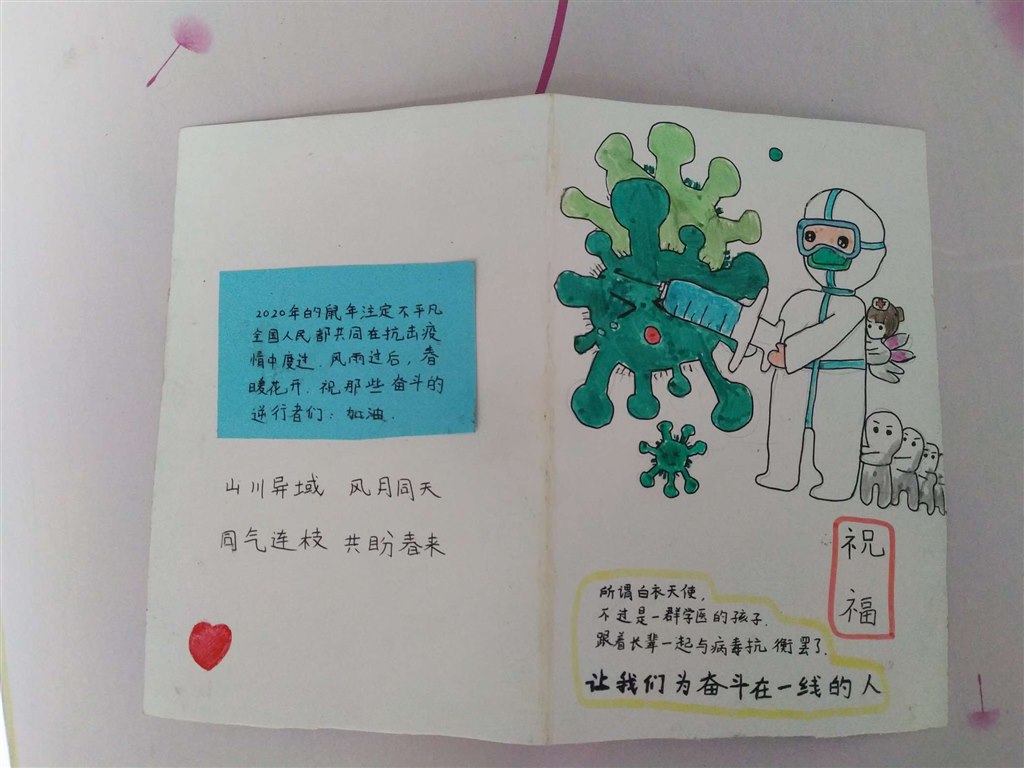 2020年的鼠年注定不平凡
全国人民都共同在抗击疫
情中度过.风雨过后，春
暖花开.祝那些奋斗的
逆行者们：加油.
山川异域 风月同天
同气连枝 共盼春来
所谓白衣天使，
不过是一群学医的孩子.
跟着长辈一起与病毒抗衡罢了.
让我们为奋斗在一线的人
祝
福